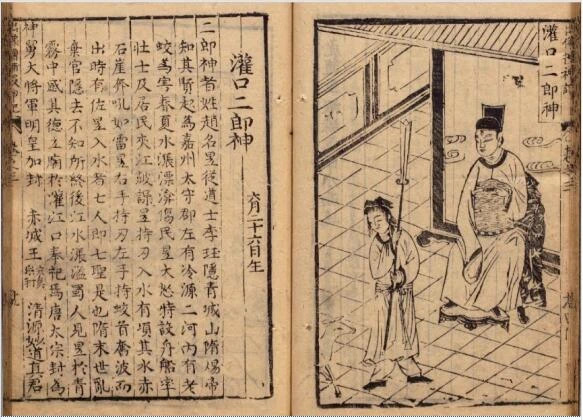 灌口二郎神
灌口二郎神
六月二十六日生
二郎神者姓趙名昱從道士李珏隱青城山隋煬帝
知其賢起為嘉州太守郡左有冷源二河內有老
蛟為害春夏水漲漂渰傷民昱大怒特設舟船率
壯士及居民夾江鼓譟昱持刃入水有頃其水赤
石崖奔吼如雷昱右手持刃左手持蛟首奮波而
出時有佐昱入水者七人即七聖是也隋末世亂
棄官隱去不知所終後江水漲溢蜀人見昱於青
霧中感其德立廟於灌江口奉祀焉唐太宗封為
神勇大將軍明皇加封 赤城王 清源妙道真君